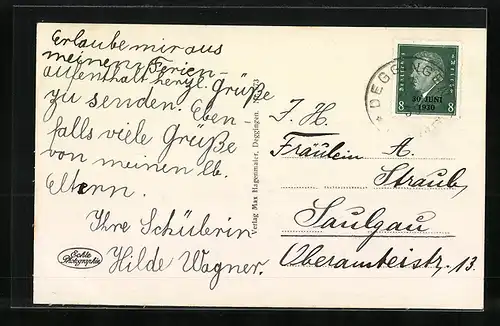 Erlaube mir aus
meinem Ferien-
aufenthalt herzl. Grüße
zu senden. Eben-
falls viele Grüße
von meinen lb.
Eltern.
Ihre Schülerin
Hilde Wagner.
Echte
Photographie
Verlag Max Hagenmaier, Deggingen.
DEGGINGE
30. JUNI
1930
8 8
Fräulein A.
Straub,
Saulgau
Oberamteistr. 13.